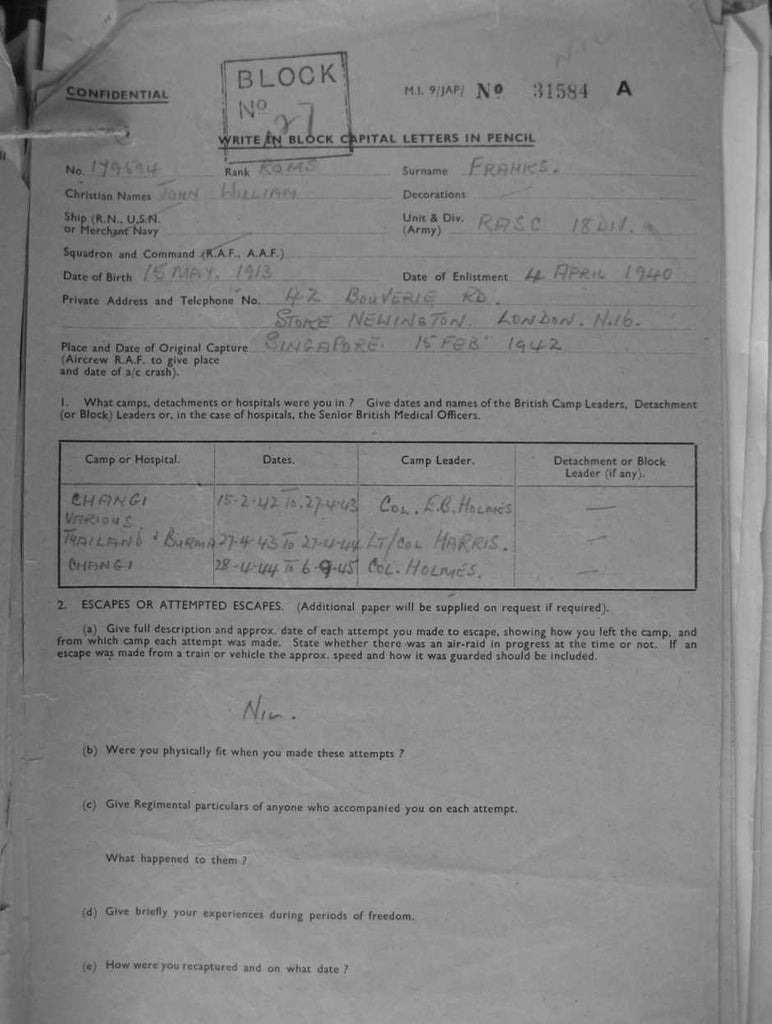 NIL
CONFIDENTIAL
BLOCK
No 27
M.I. 9/JAP/ No 31584 A
WRITE IN BLOCK CAPITAL LETTERS IN PENCIL
No. 179594 Rank RQMS Surname FRANKS.
Christian Names JOHN WILLIAM Decorations
Ship (R.N., U.S.N. or Merchant Navy
Unit & Div. (Army) RASC 18 DIV.
Squadron and Command (R.A.F., A.A.F.)
Date of Birth 15 MAY. 1913 Date of Enlistment 4 APRIL 1940
Private Address and Telephone No. 42 BOUVERIE RD.
STOKE NEWINGTON. LONDON. N.16.
Place and Date of Original Capture SINGAPORE. 15 FEB' 1942
(Aircrew R.A.F. to give place
and date of a/c crash).
1. What camps, detachments or hospitals were you in ? Give dates and names of the British Camp Leaders, Detachment
(or Block) Leaders or, in the case of hospitals, the Senior British Medical Officers.
Camp or Hospital. Dates. Camp Leader. Detachment or Block
Leader (if any).
CHANGI 15-2-42 To. 27-4-43 COL. E.B. HOLMES —
VARIOUS
THAILAND & BURMA 27-4-43 To 27-4-44 LT/COL HARRIS. —
CHANGI 28-4-44 To 6-9-45 COL. HOLMES. —
2. ESCAPES OR ATTEMPTED ESCAPES. (Additional paper will be supplied on request if required).
(a) Give full description and approx. date of each attempt you made to escape, showing how you left the camp, and
from which camp each attempt was made. State whether there was an air-raid in progress at the time or not. If an
escape was made from a train or vehicle the approx. speed and how it was guarded should be included.
NIL.
(b) Were you physically fit when you made these attempts ?
(c) Give Regimental particulars of anyone who accompanied you on each attempt.
What happened to them ?
(d) Give briefly your experiences during periods of freedom.
(e) How were you recaptured and on what date ?